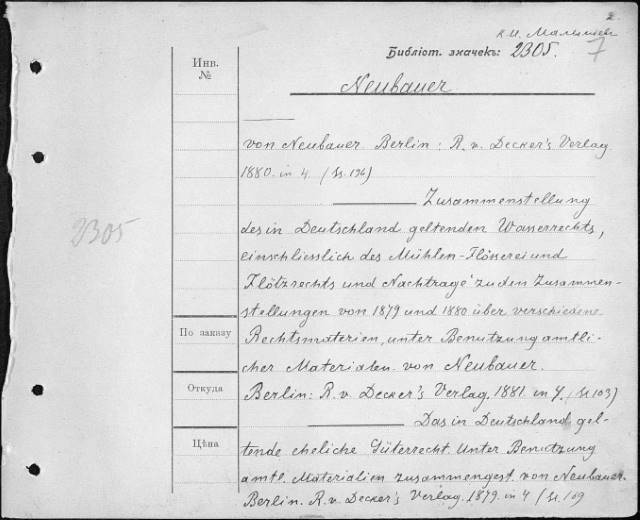 2.
К. И. Малышев
Библіот. значекъ: 2305.
7
Инв.
№
Neubauer
von Neubauer Berlin: R. v. Decker's Verlag
1880. in 4. (S. 136)
Zusammenstellung
des in Deutschland geltenden Wasserrechts,
einschliesslich des Mühlen-Flösserei und
Flötzrechts und Nachträge zu den Zusammen-
stellungen von 1879 und 1880 über verschiedene
Rechtsmaterien, unter Benutzung amtli-
cher Materialen von Neubauer.
Berlin: R. v. Decker's Verlag. 1881. in 4. (S. 103)
Das in Deutschland gel-
tende eheliche Güterrecht. Unter Benutzung
amtl. Materialien zusammengest. von Neubauer.
Berlin. R. v. Decker's Verlag. 1879. in 4 (S. 109
2305
По заказу
Откуда
Цѣна